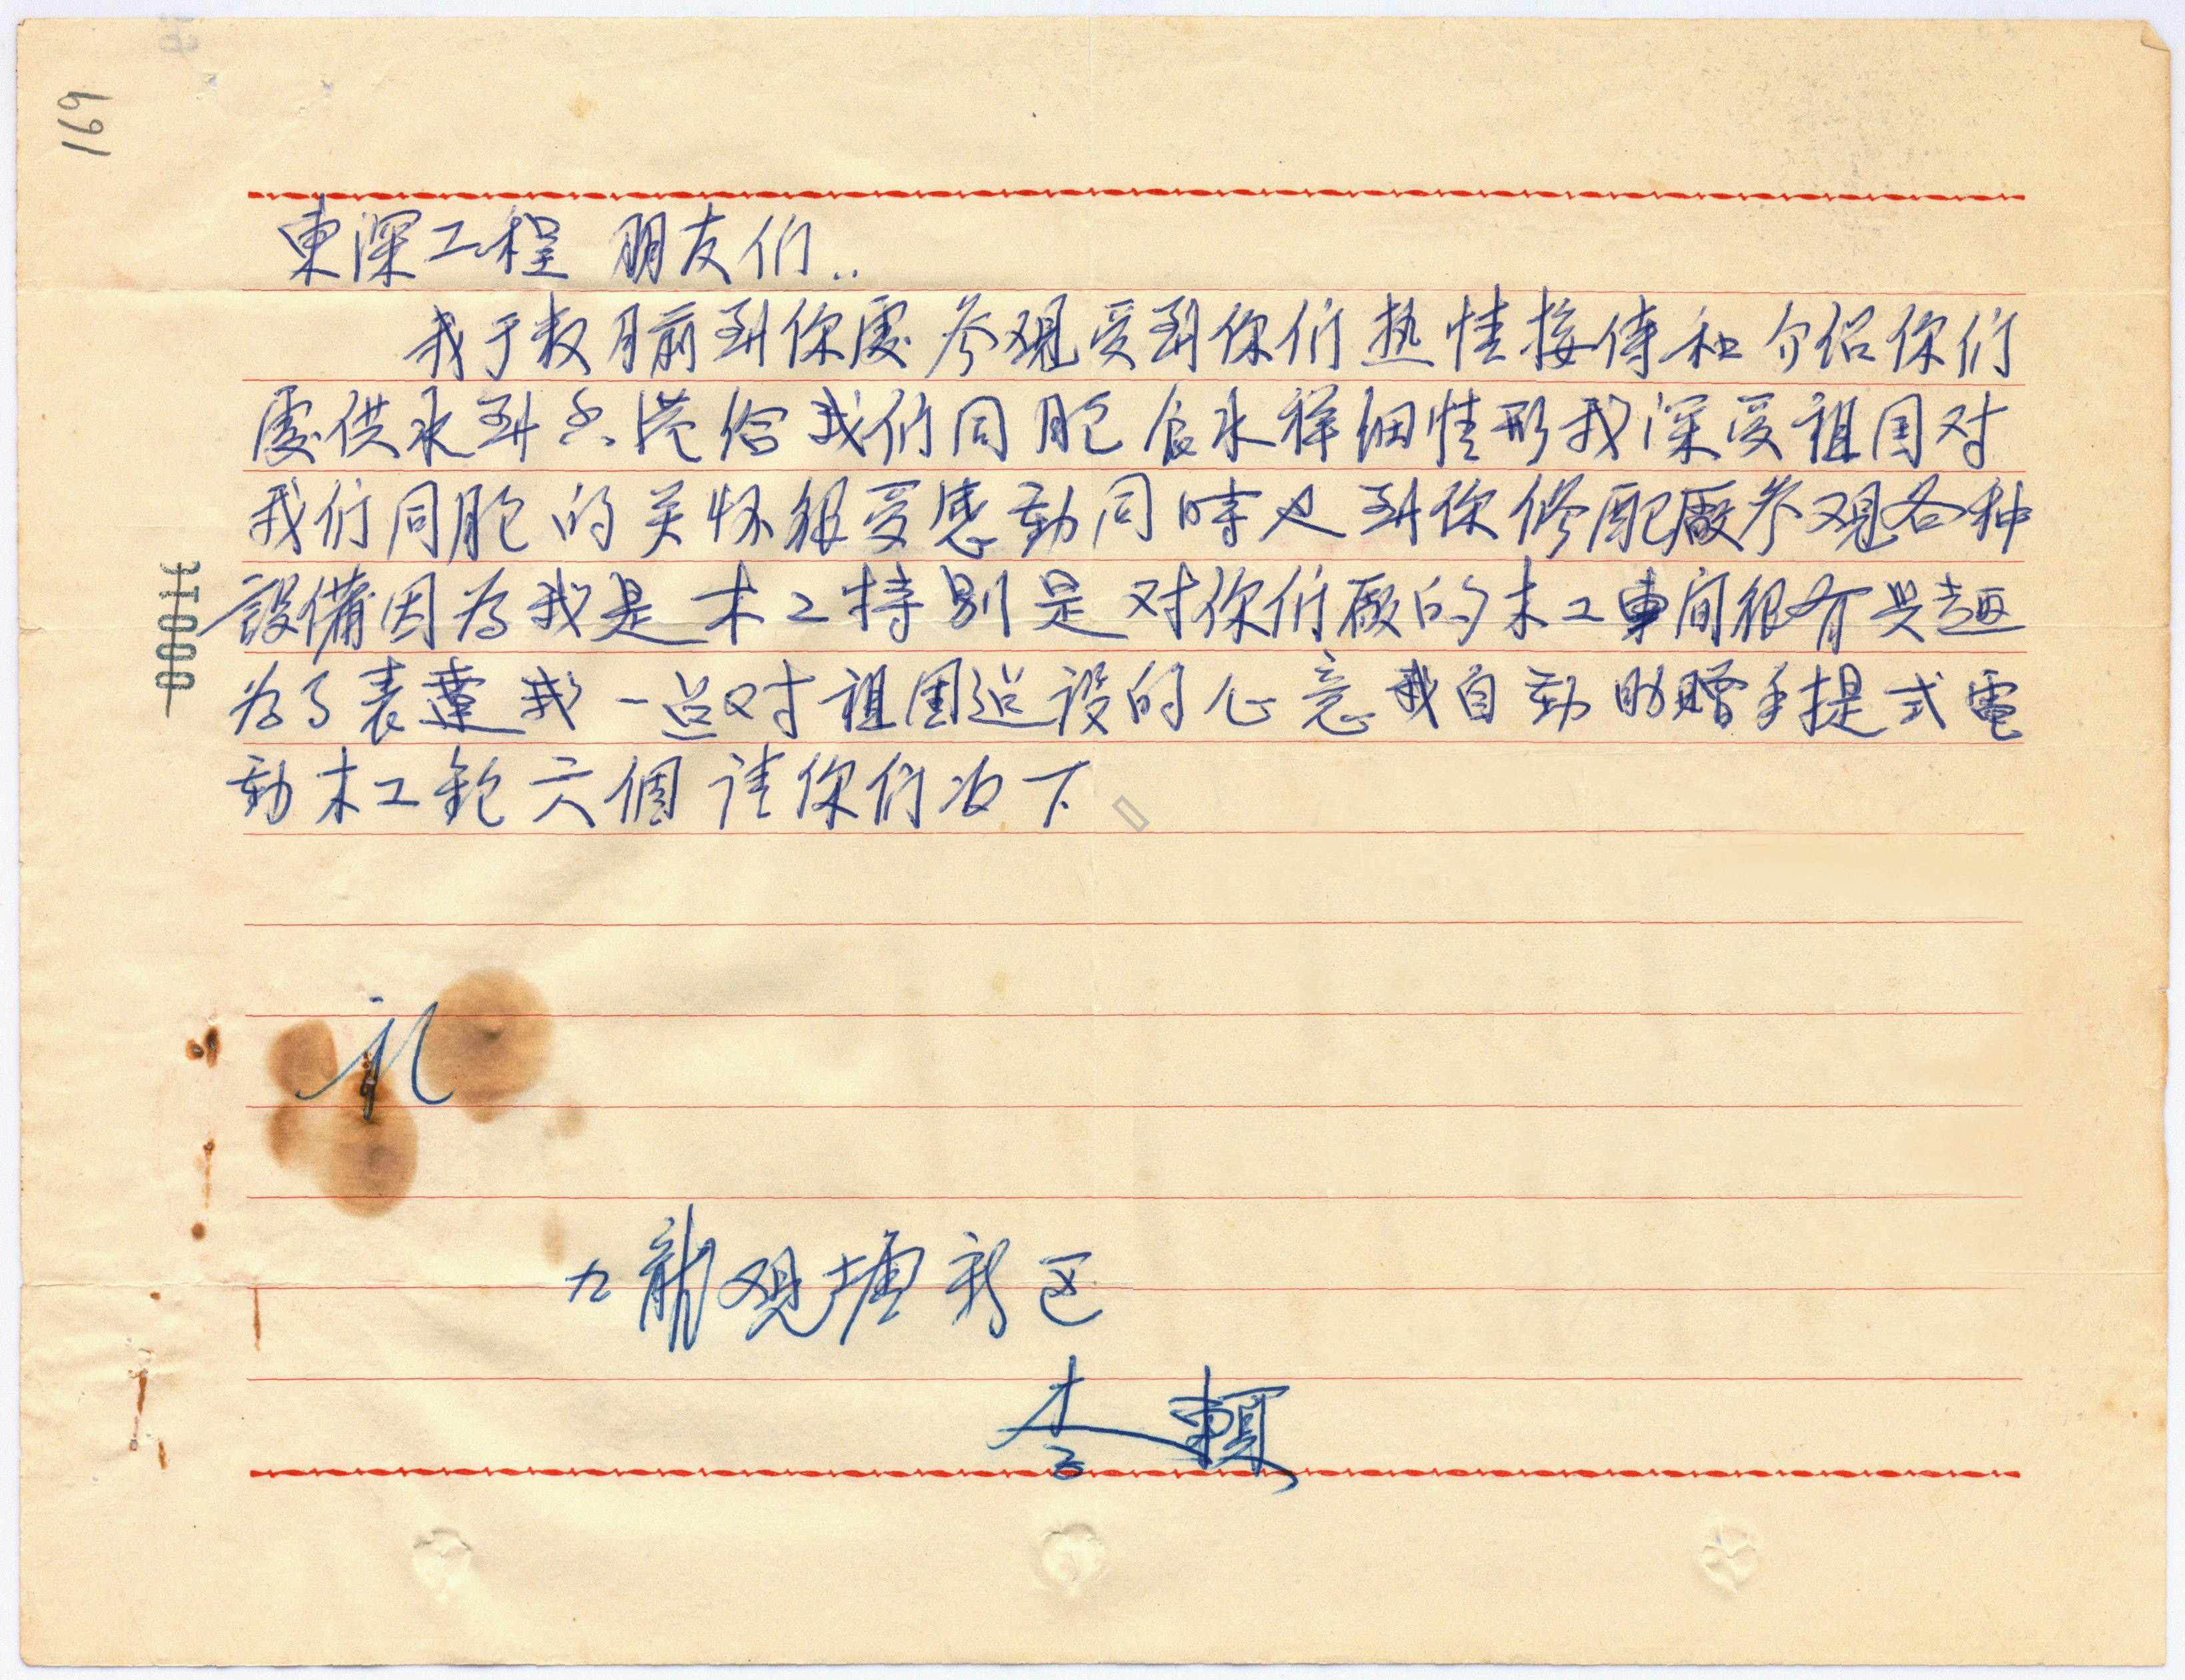 169
東深工程 朋友们：
我于数月前到你處参观受到你们热情接待和介绍你们
處供水到香港给我们同胞食水祥细情形我深受祖国对
我们同胞的关怀很受感動同時也到你修配廠参观各种
設備因为我是木工特别是对你们廠的木工車间很有兴趣
为了表達我一点对祖国建設的心意我自動助赠手提式電
動木工鉋六個请你们收下
礼
九龍观塘新区
李賴
00011